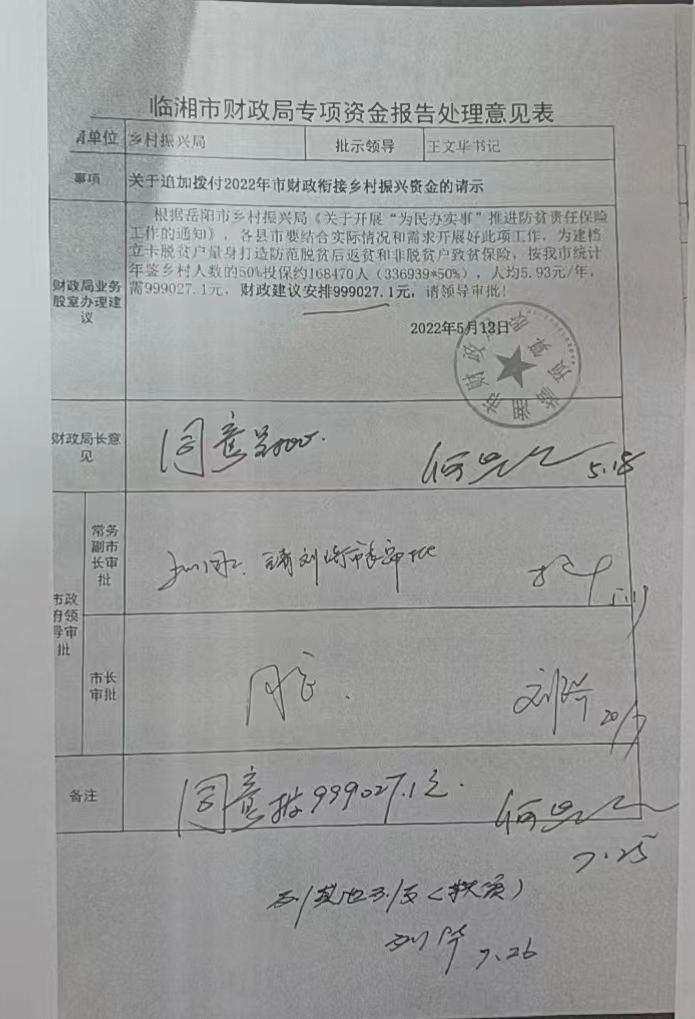 临湘市财政局专项资金报告处理意见表
单位 乡村振兴局 批示领导 王文华书记
事项 关于追加拨付2022年市财政衔接乡村振兴资金的请示
财政局业务股室办理建议
根据岳阳市乡村振兴局《关于开展“为民办实事”推进防贫责任保险
工作的通知》，各县市要结合实际情况和需求开展好此项工作，为建档
立卡脱贫户量身打造防范脱贫后返贫和非脱贫户致贫保险，按我市统计
年鉴乡村人数的50%投保约168470人（336939*50%），人均5.93元/年，
需999027.1元，财政建议安排999027.1元，请领导审批！
2022年5月13日
临湘市财政局
预算股
财政局长意见
同意
5.18
市政府领导审批
常务副市长审批
市长审批
同意.
备注
同意拨999027.1元.
7.25
7.26